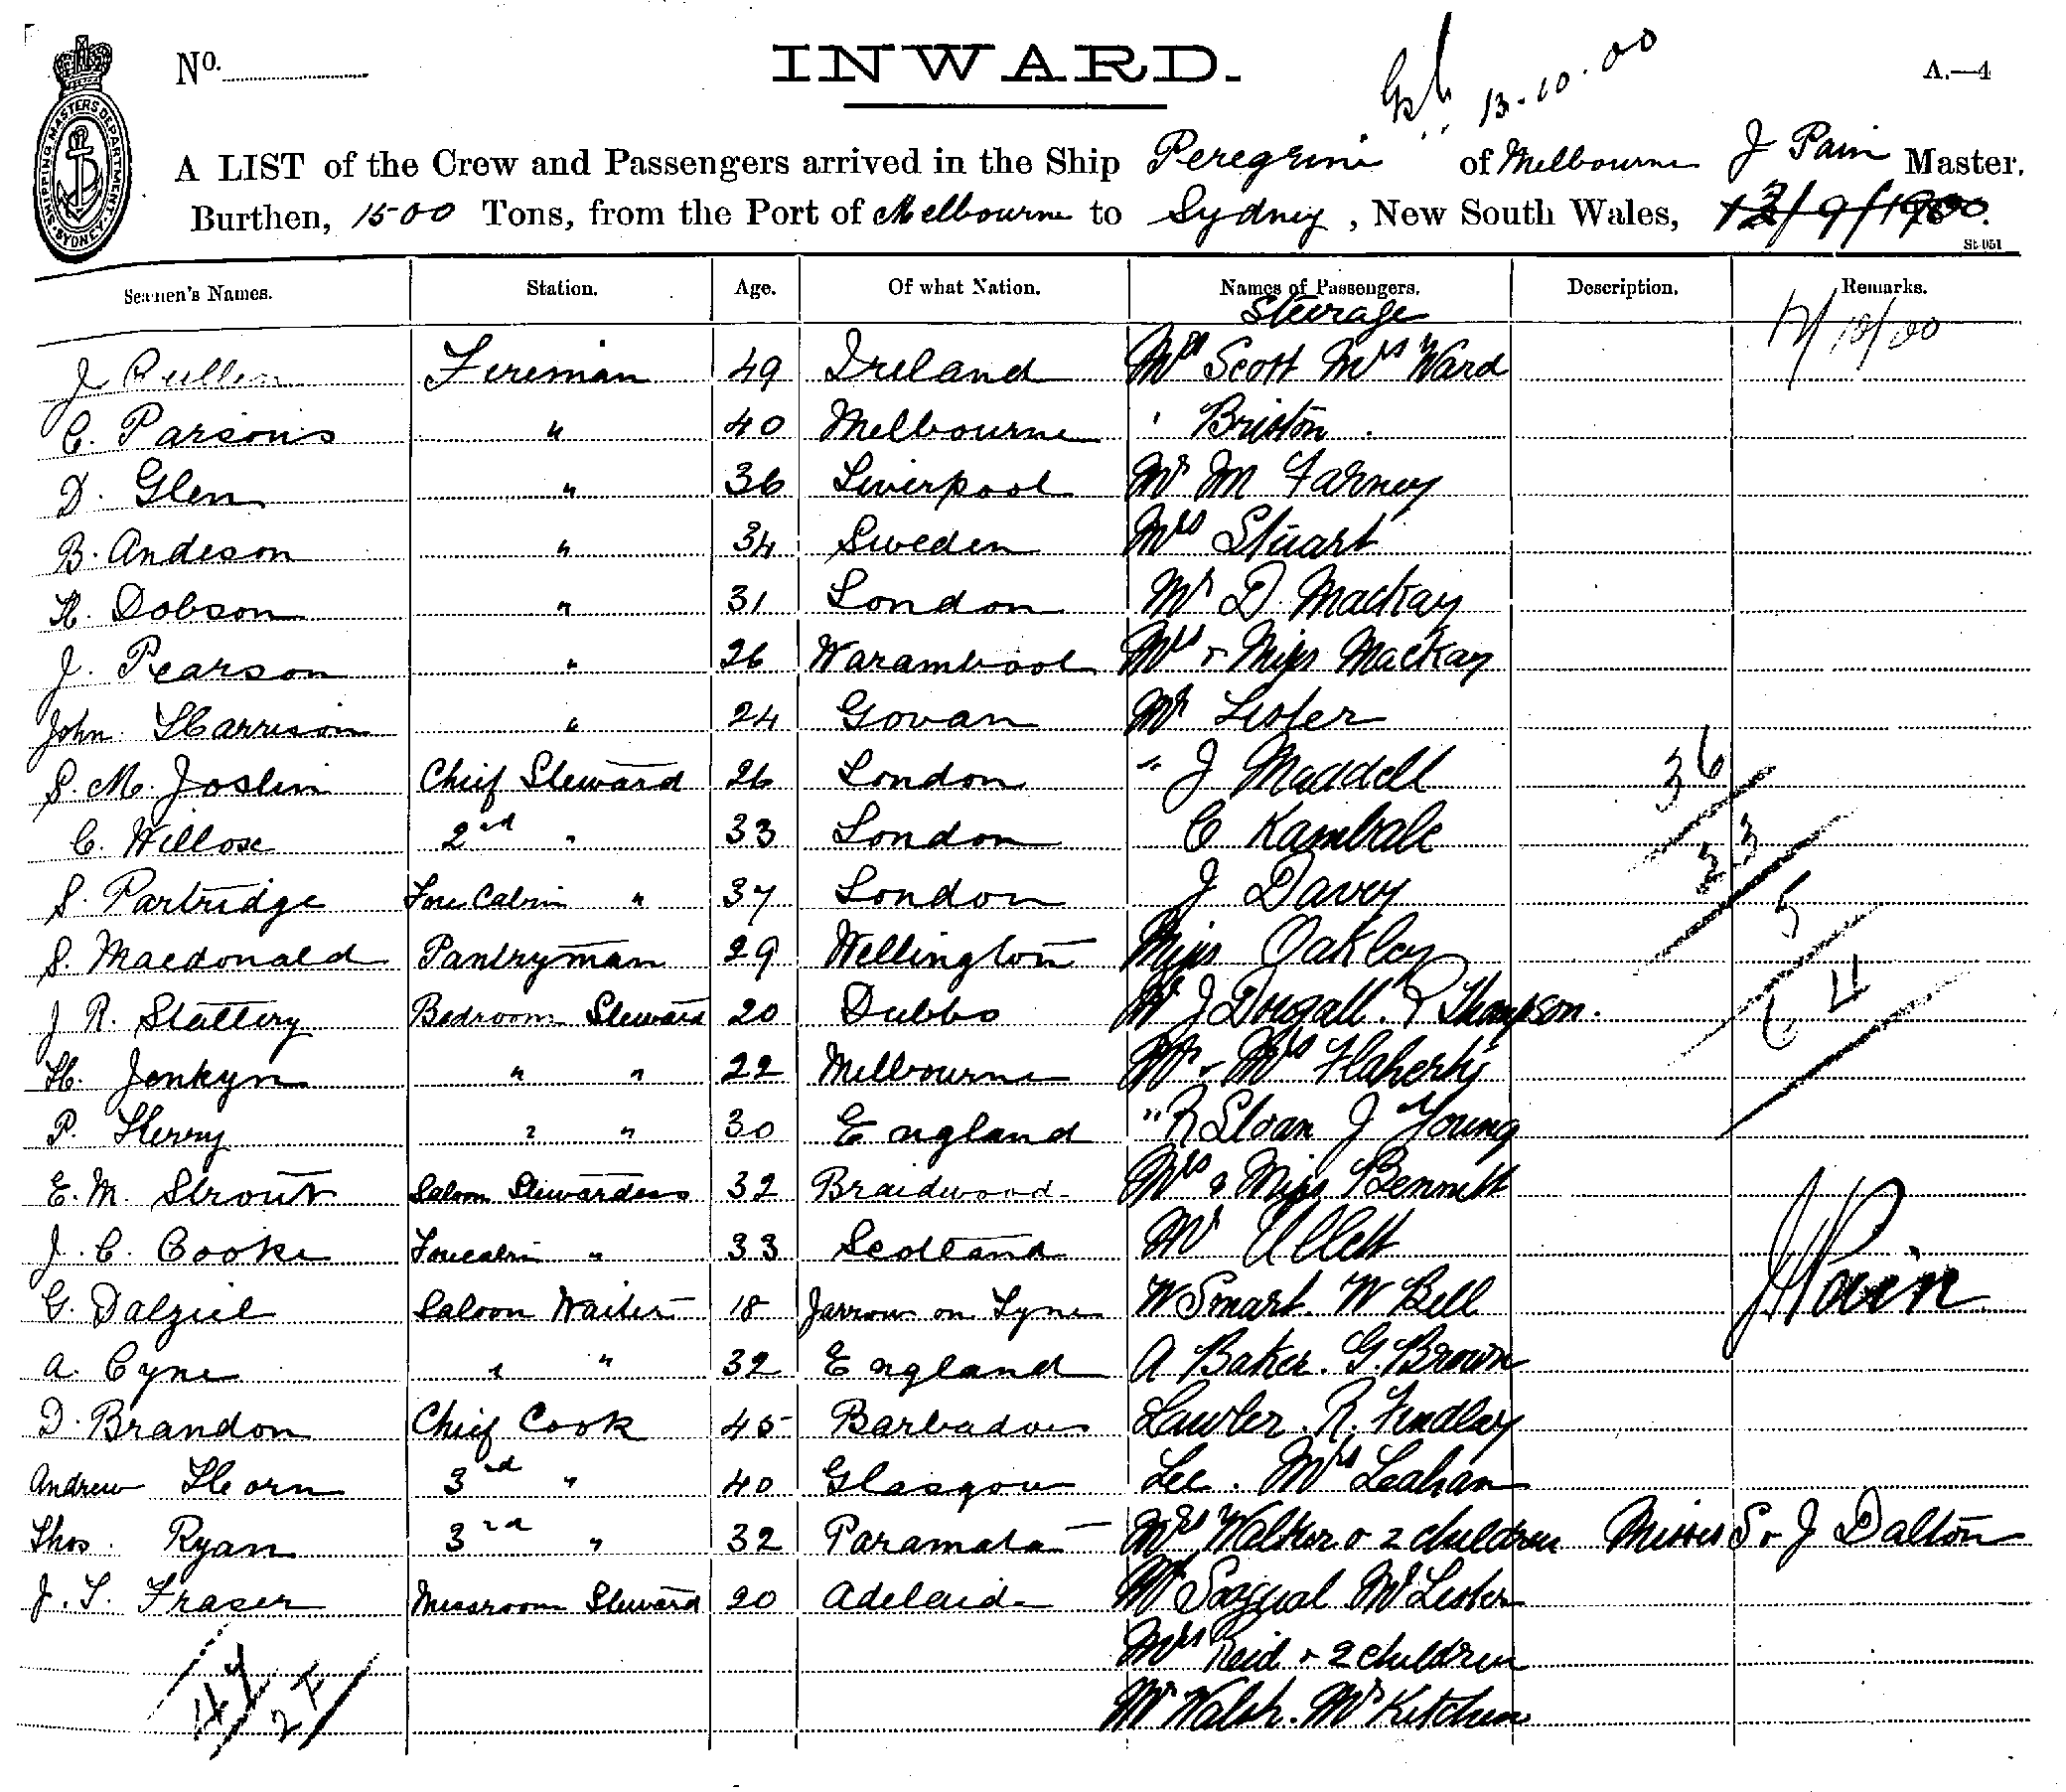 No.
INWARD.
13-10-00
A.—4
SHIPPING MASTERS DEPARTMENT SYDNEY
A LIST of the Crew and Passengers arrived in the Ship Peregrine of Melbourne J Pain Master.
Burthen, 1500 Tons, from the Port of Melbourne to Sydney, New South Wales, 13/9/1900.
St 051
Seamen's Names. Station. Age. Of what Nation. Names of Passengers. Description. Remarks.
Steerage
12/10/00
J Cullen Fireman 49 Ireland Mrs Scott Mrs Ward
C. Parsons " 40 Melbourne ' Briston
D. Glen " 36 Liverpool Mr M Farney
B. Andeson " 34 Sweden Mrs Stuart
H. Dobson " 31 London Mr D. Mackay
J. Pearson " 26 Warambool Mrs & Miss Mackay
John Harrison " 24 Govan Mr Lester
S. M. Joslin Chief Steward 26 London " J Maddell 36
C. Willox 2nd " 33 London C Kambale 33
S. Partridge Fore Cabin " 37 London J Davey 5
S. Macdonald Pantryman 29 Wellington Miss Oakley
J R. Slattery Bedroom Steward 20 Dubbo Mr J Dugall. R Thompson.
H. Jenkyn " " 22 Melbourne Mr & Mrs Flaherty
P. Henry " " 30 England " R Sloan J Young
E. M. Strout Saloon Stewardess 32 Braidwood Mrs & Miss Bennett
J. C. Cooke Forecabin " 33 Scotland Mr Ullett
G. Dalziel Saloon Waiter 18 Jarrow on Tyne W Smart. W Bell
J Pain
A. Cyne " " 32 England A Baker. G. Brown
D. Brandon Chief Cook 45 Barbadoes Lawler. R. Findlay
Andrew Horn 3rd " 40 Glasgow Lee. Mrs Leahan
Thos. Ryan 3rd " 32 Paramata Mrs Walker & 2 children Misses S & J Dalton
J. T. Fraser Messroom Steward 20 Adelaide Mr Lester
Mrs Reid & 2 children
Mr Walsh. Mr Kitchen